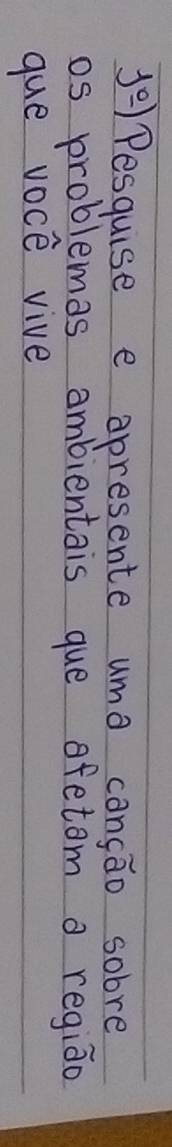 1º) Pesquise e apresente uma canção sobre
os problemas ambientais que afetam a região
que você vive